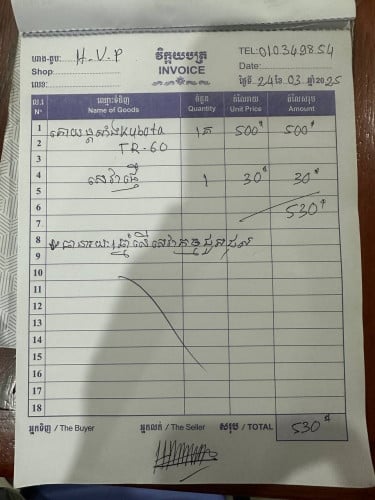 ហាង-តូប: H-V-P
វិក្កយបត្រ
TEL: 010349854
Shop
INVOICE
Date:
លេខ:
ថ្ងៃទី 24 ខែ 03 ឆ្នាំ 2025
ល.រ ឈ្មោះទំនិញ ចំនួន តំលៃរាយ តំលៃសរុប
N° Name of Goods Quantity Unit Price Amount
1 Kubota 500 500
2 TR-60
3
4 សេវាធ្វើ 1 30 30
5
6 530
7
8
9
10
11
12
13
14
15
16
17
18
អ្នកទិញ / The Buyer អ្នកលក់ / The Seller សរុប / TOTAL 530